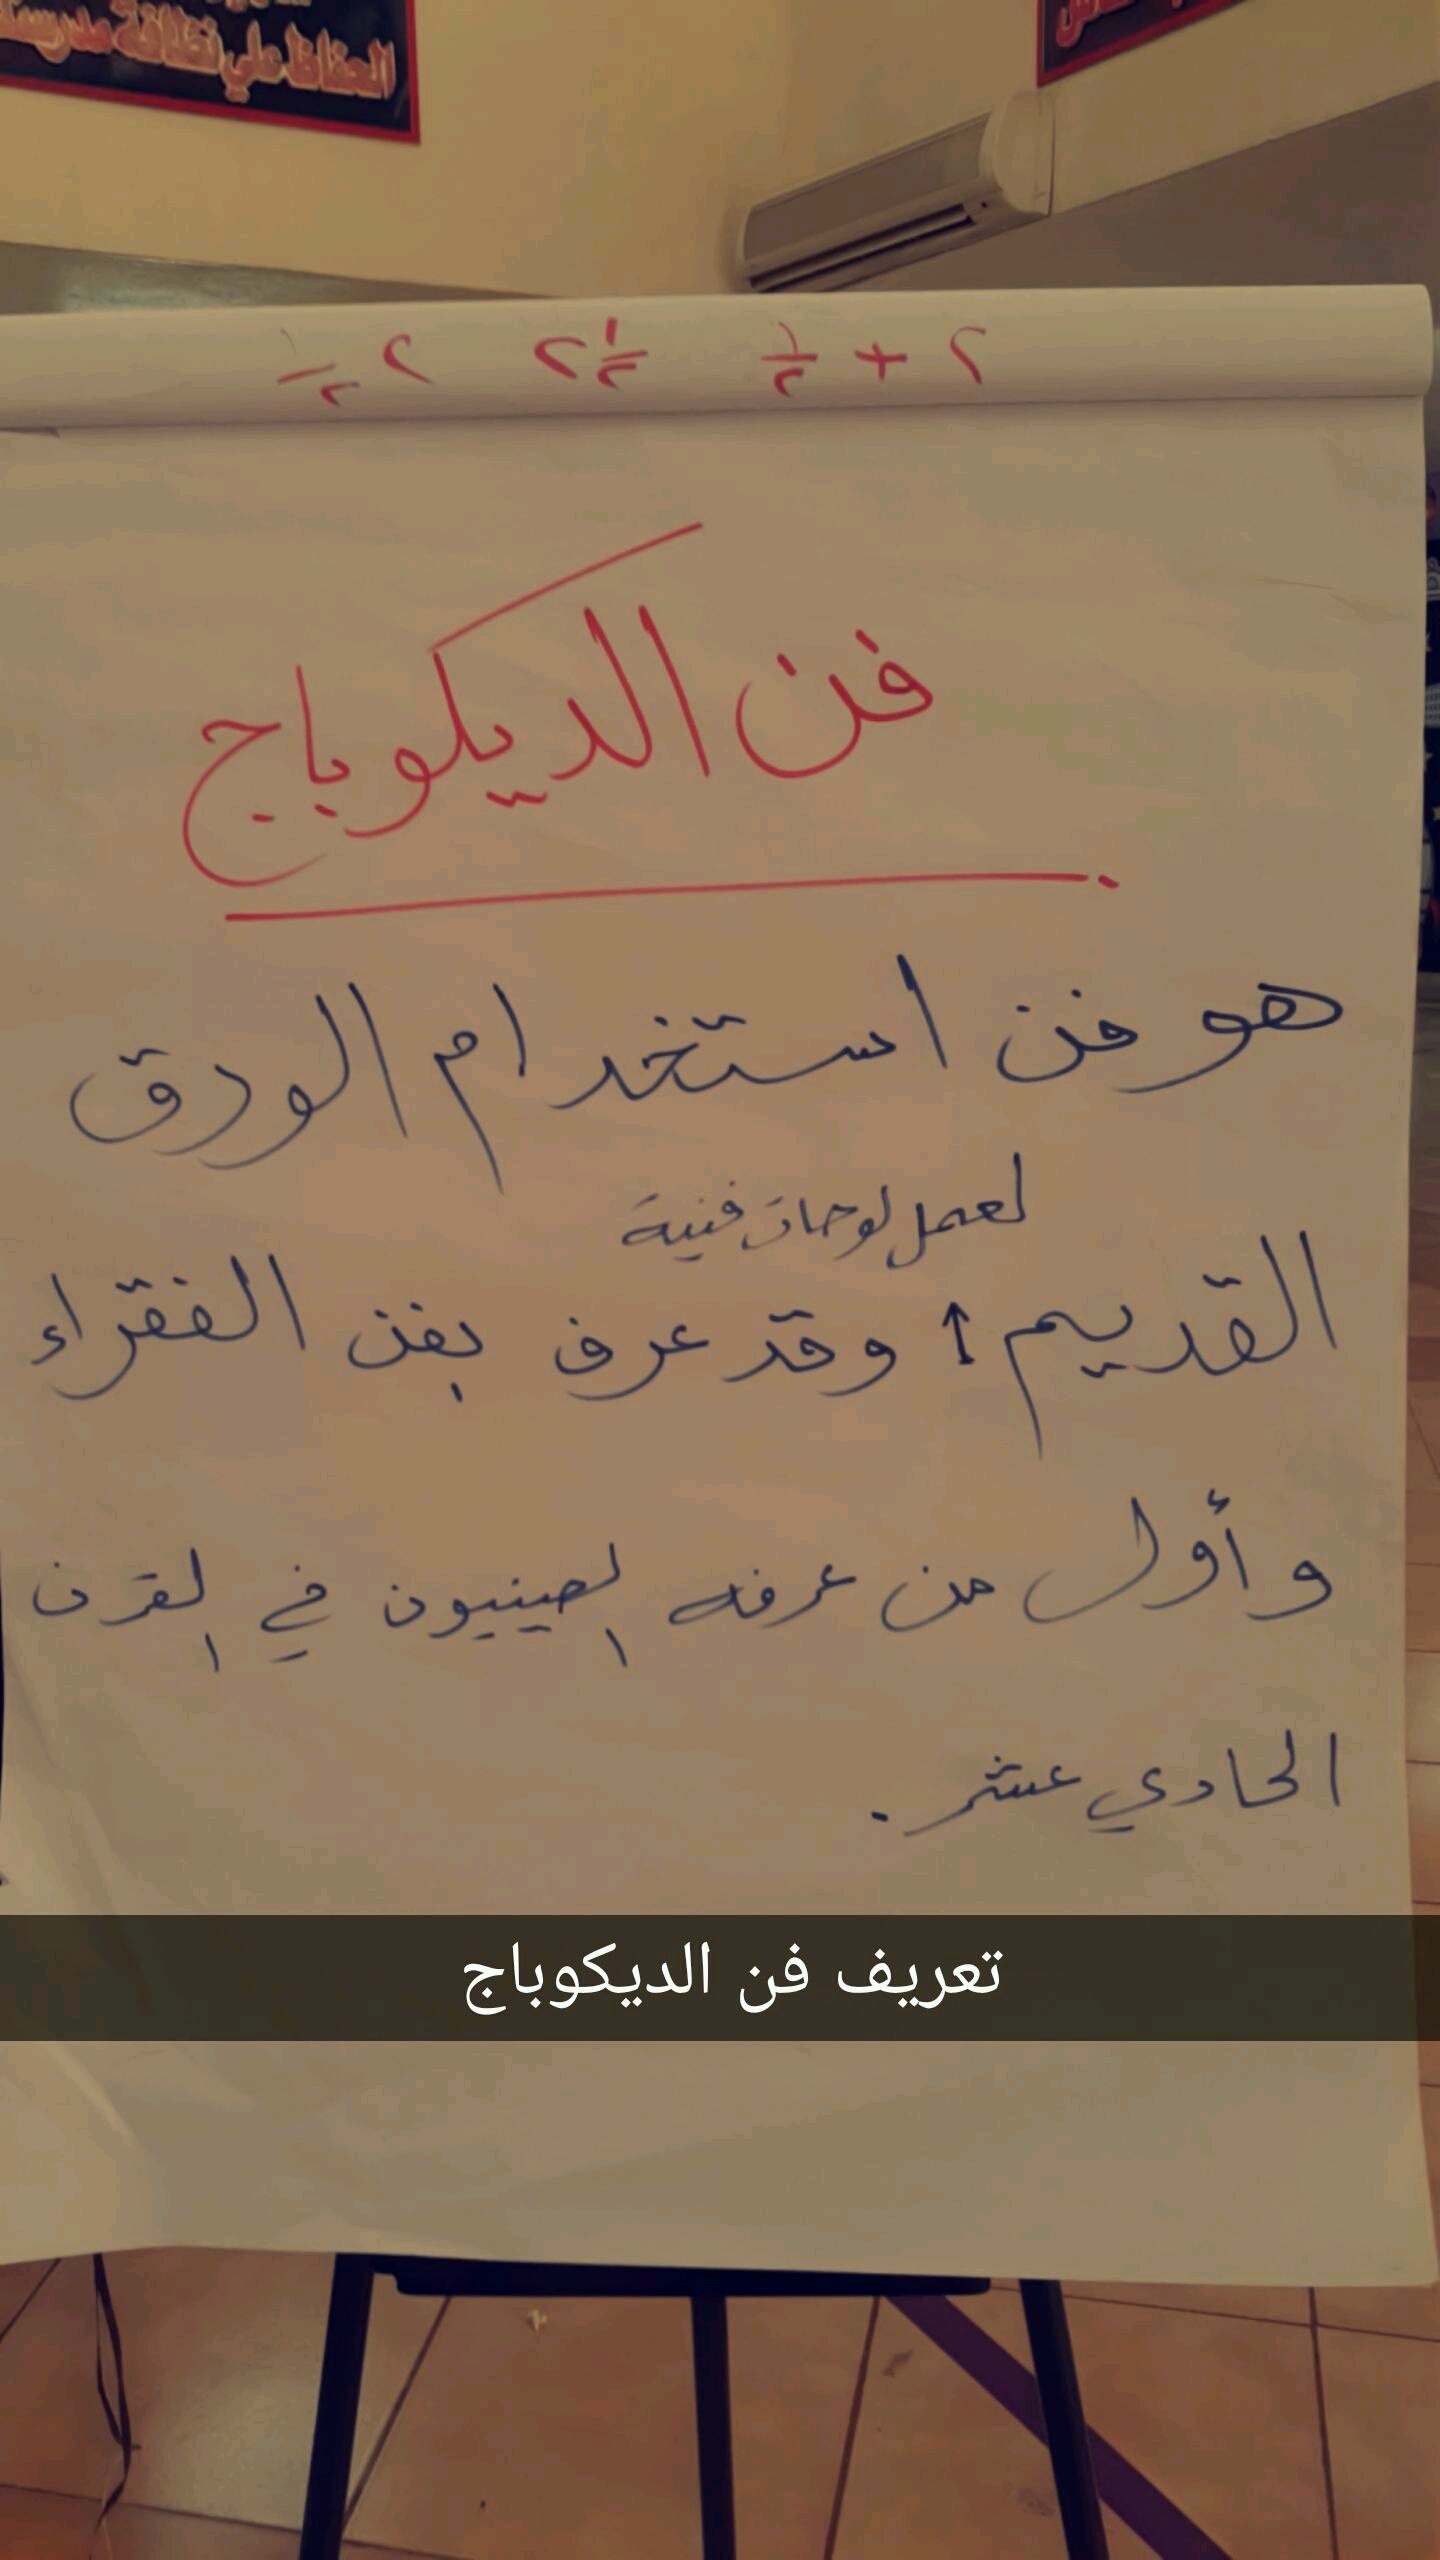 الحفاظ علي نظافة مدرستنا
٢ + ١/٢ ٢ ١/٢ ٢ ١/٢
فن الديكوباج
هو فن استخدام الورق
لعمل لوحات فنية
القديم ↑ وقد عرف بفن الفقراء
وأول من عرفه الصينيون في القرن
الحادي عشر .
تعريف فن الديكوباج